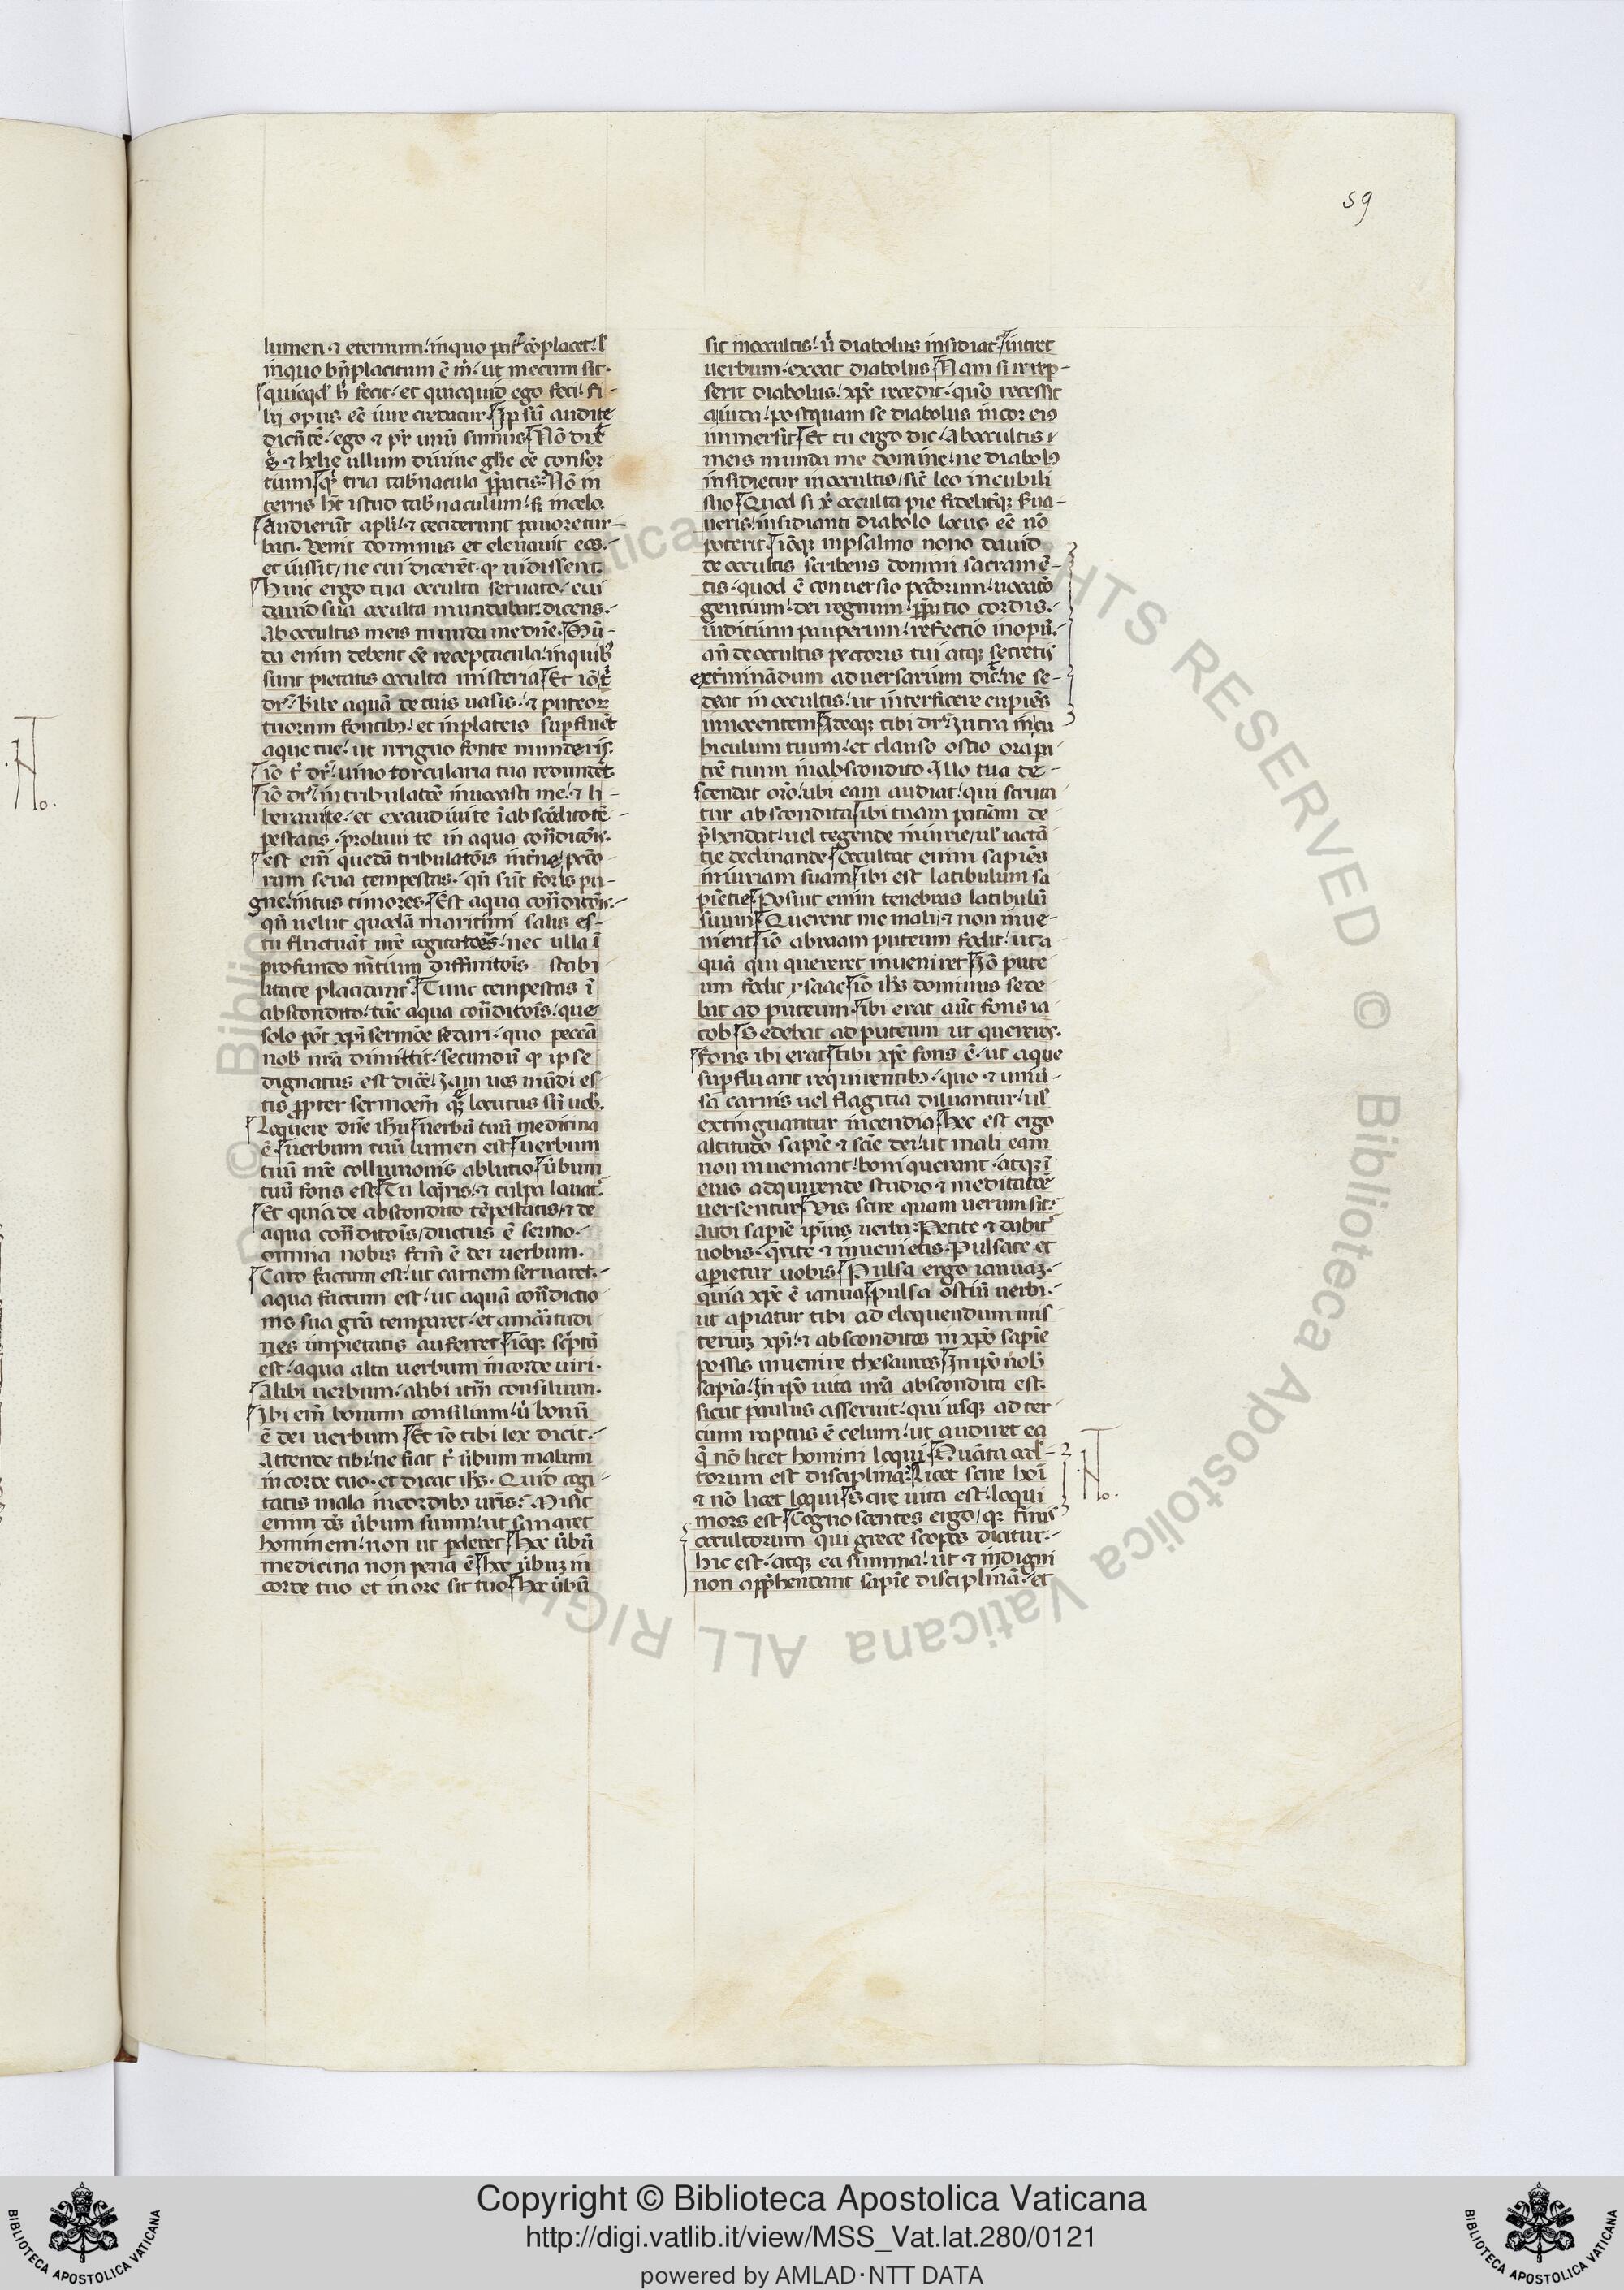 59
lumen ⁊ eternum. in quo pat᷑ cōplacet. ł
in quo bn̄placitum ē m̄. ut mecum sit.
quicqͥd h̄ fecit. et quicquid ego feci. fi-
lij opus eē iure credatur. Ip̄sū audite
dicētē. ego ⁊ pr̄ unū sumus. Nō dix̄
⁊ helie ullum diuine glīe eē consor
tium. tria tab̄nacula p̄patis. Nō in
terris h̄t istud tab̄naculum. sꝫ in celo.
Audierūt apl̄i. ⁊ ceciderunt pauore tur-
bati. Venit dominus et eleuauit eos.
et iussit, ne cui dicerēt. ꝙ uidissent.
Huic ergo tua occulta seruato. cui
dauid sua occulta mundabat. dicens.
Ab occultis meis munda me dn̄e. Mū-
da enim debent eē receptacula. in quibꝰ
sunt pietatis occulta misteria. Et iō
dr̄. Bibe aquā de tuis uasis. ⁊ puteoꝝ
tuorum fontibꝰ. et in plateis supfluēt
aque tue. ut irriguo fonte munderis.
iō dr̄. uino torcularia tua redundēt
iō dr̄. in tribulatōe inuocasti me. ⁊ li-
beraui te. et exaudiui te ī absc̄dito tē-
pestatis. probaui te in aqua cōtradictōis.
est em̄ quedā tribulatōis int̄ne pctō-
rum seua tempestas. qn̄ sūt foris pu-
gne. intus timores. Est aqua cōtradictōis.
qn̄ uelut quodā maritimi salis es-
tu fluctuāt nr̄e cogitatōes. nec ulla ī
profundo mētium diffinitōis stabi
litate placidant᷑. Tunc tempestas ī
abscondito. tūc aqua cōtradictōis. que
solo pōt xp̄i sermōe sedari. quo peccā
nob̄ nr̄a dimittit. secundū ꝙ ipse
dignatus est dicē. Iam uos mūdi es-
tis ꝓpter sermoem̄ quē locutus sū uob̄.
Loquere dn̄e ihū. uerbū tuū medicina
ē. uerbum tuū lumen est. uerbum
tuū nr̄e colluuionis ablutio. ūbum
tuū fons est. Tu loq̄ris. ⁊ culpa lauat᷑.
Et quia de abscondito tēpestatis, ⁊ de
aqua cōtradictōis, ductus ē sermo.
omnia nobis fcm̄ ē dei uerbum.
Caro factum est. ut carnem seruaret.
aqua factum est. ut aquā cōtradictio
nis sua grā temparet. et amāitudi
nes impietatis auferret. iōqꝫ sc̄ptū
est. aqua alta uerbum in corde uiri.
Alibi uerbum. alibi itm̄ consilium.
Ibi em̄ bonum consilium. ū bonū
ē dei uerbum. Et iō tibi lex dicit.
Attende tibi. ne fiat t̄ ūbum malum
in corde tuo. et dicat ihs̄. Quid cogi-
tatis mala in cordibꝰ ur̄is. Misit
enim dꝰ ūbum suum. ut sanaret
hominem. non ut pderet. Hoc ūbū
medicina non pena ē. hoc ūbuꝫ in
corde tuo et in ore sit tuo. Hoc ūbū
sic in occultis. ū diabolus insidiat᷑. intret
uerbum. exeat diabolus. Nam si irrep-
serit diabolus. xp̄c recedit. quō recessit
a iuda. postquam se diabolus in cor eiꝰ
immersit. Et tu ergo dic. Ab occultis
meis munda me domine. ne diabolꝰ
insidietur in occultis, sic̄ leo in cubili
suo. Quod si xp̄i occulta pie fideliterqꝫ sua-
ueris. insidianti diabolo locus eē nō
poterit. iōqꝫ in psalmo nono dauid
de occultis scribens domini sacramē-
tis. quod ē conuersio pctōrum. uocatō
gentium. dei regnum. ꝓpitio cordis.
iuditium pauperum. refectio inopū.
an̄ de occultis pectoris tui atqꝫ secretis
ext̄mināndum aduersarium dic̄. ne se-
deat in occultis. ut interficere cupiēs
innocentem. Ideoqꝫ tibi dr̄. Intra in cu
biculum tuum. et clauso ostio ora pa
trē tuum in abscondito. Illo tua de-
scendat oro. ubi eam audiat. qui scruta
tur abscondita. ibi tuam patiam de
p̄hendat. uel tegende iniurie, uł iactā
tie declinande. occultat enim sapiēs
iniuriam suam. ibi est latibulum sa
piētie. Posuit enim tenebras latibulū
suum. Querent me mali. ⁊ non inue-
nient. iō abraam puteum fodit. ut a
quā qui quereret inueniret. Iō pute
um fodit ysaac. iō ihs̄ dominus sede
bat ad puteum. ibi erat aūt fons ia
cob. Sedebat ad puteum ut quereres.
Fons ibi erat. tibi xp̄c fons ē. ut aque
supfluant requirentibꝰ. quo ⁊ uniū-
sa carnis uel flagitia diluantur. uł
extinguantur incendia. Hec est ergo
altitudo sapiē ⁊ sciē dei. ut mali eam
non inueniant. boni querant. atqꝫ ī
eius adquirende studio ⁊ meditatōe
uersentur. Vis scire quam uerum sit.
audi sapiē ipsius uerba. Petite ⁊ dabit᷑
uobis. q̄rite ⁊ inuenietis. Pulsate et
aperietur uobis. Pulsa ergo ianuaꝫ.
quia xp̄c ē ianua. pulsa ostiū uerbi.
ut apiatur tibi ad eloquendum mis
teriuꝫ xp̄i. ⁊ absconditos in xp̄o sapiē
possis inuenire thesauros. In ip̄o nob̄
sapiā. In ip̄o uita nr̄a abscondita est.
sicut paulus asseruit. qui usqꝫ ad ter
cium raptus ē celum. ut audiret ea
q̄ nō licet homini loqui. Quāta occl-
torum est disciplina. Licet scire hoī
⁊ nō licet loqui. Scire uita est. loqui
mors est. Cognoscentes ergo, qꝫ finis
occultorum qui grece scopos dicitur.
hic est. atqꝫ ea summa. ut ⁊ indigni
non app̄hendant sapiē disciplinā. et
No.
No.
Copyright © Biblioteca Apostolica Vaticana
http://digi.vatlib.it/view/MSS_Vat.lat.280/0121
powered by AMLAD·NTT DATA
BIBLIOTECA APOSTOLICA VATICANA
BIBLIOTECA APOSTOLICA VATICANA
© Biblioteca Apostolica Vaticana ALL RIGHTS RESERVED